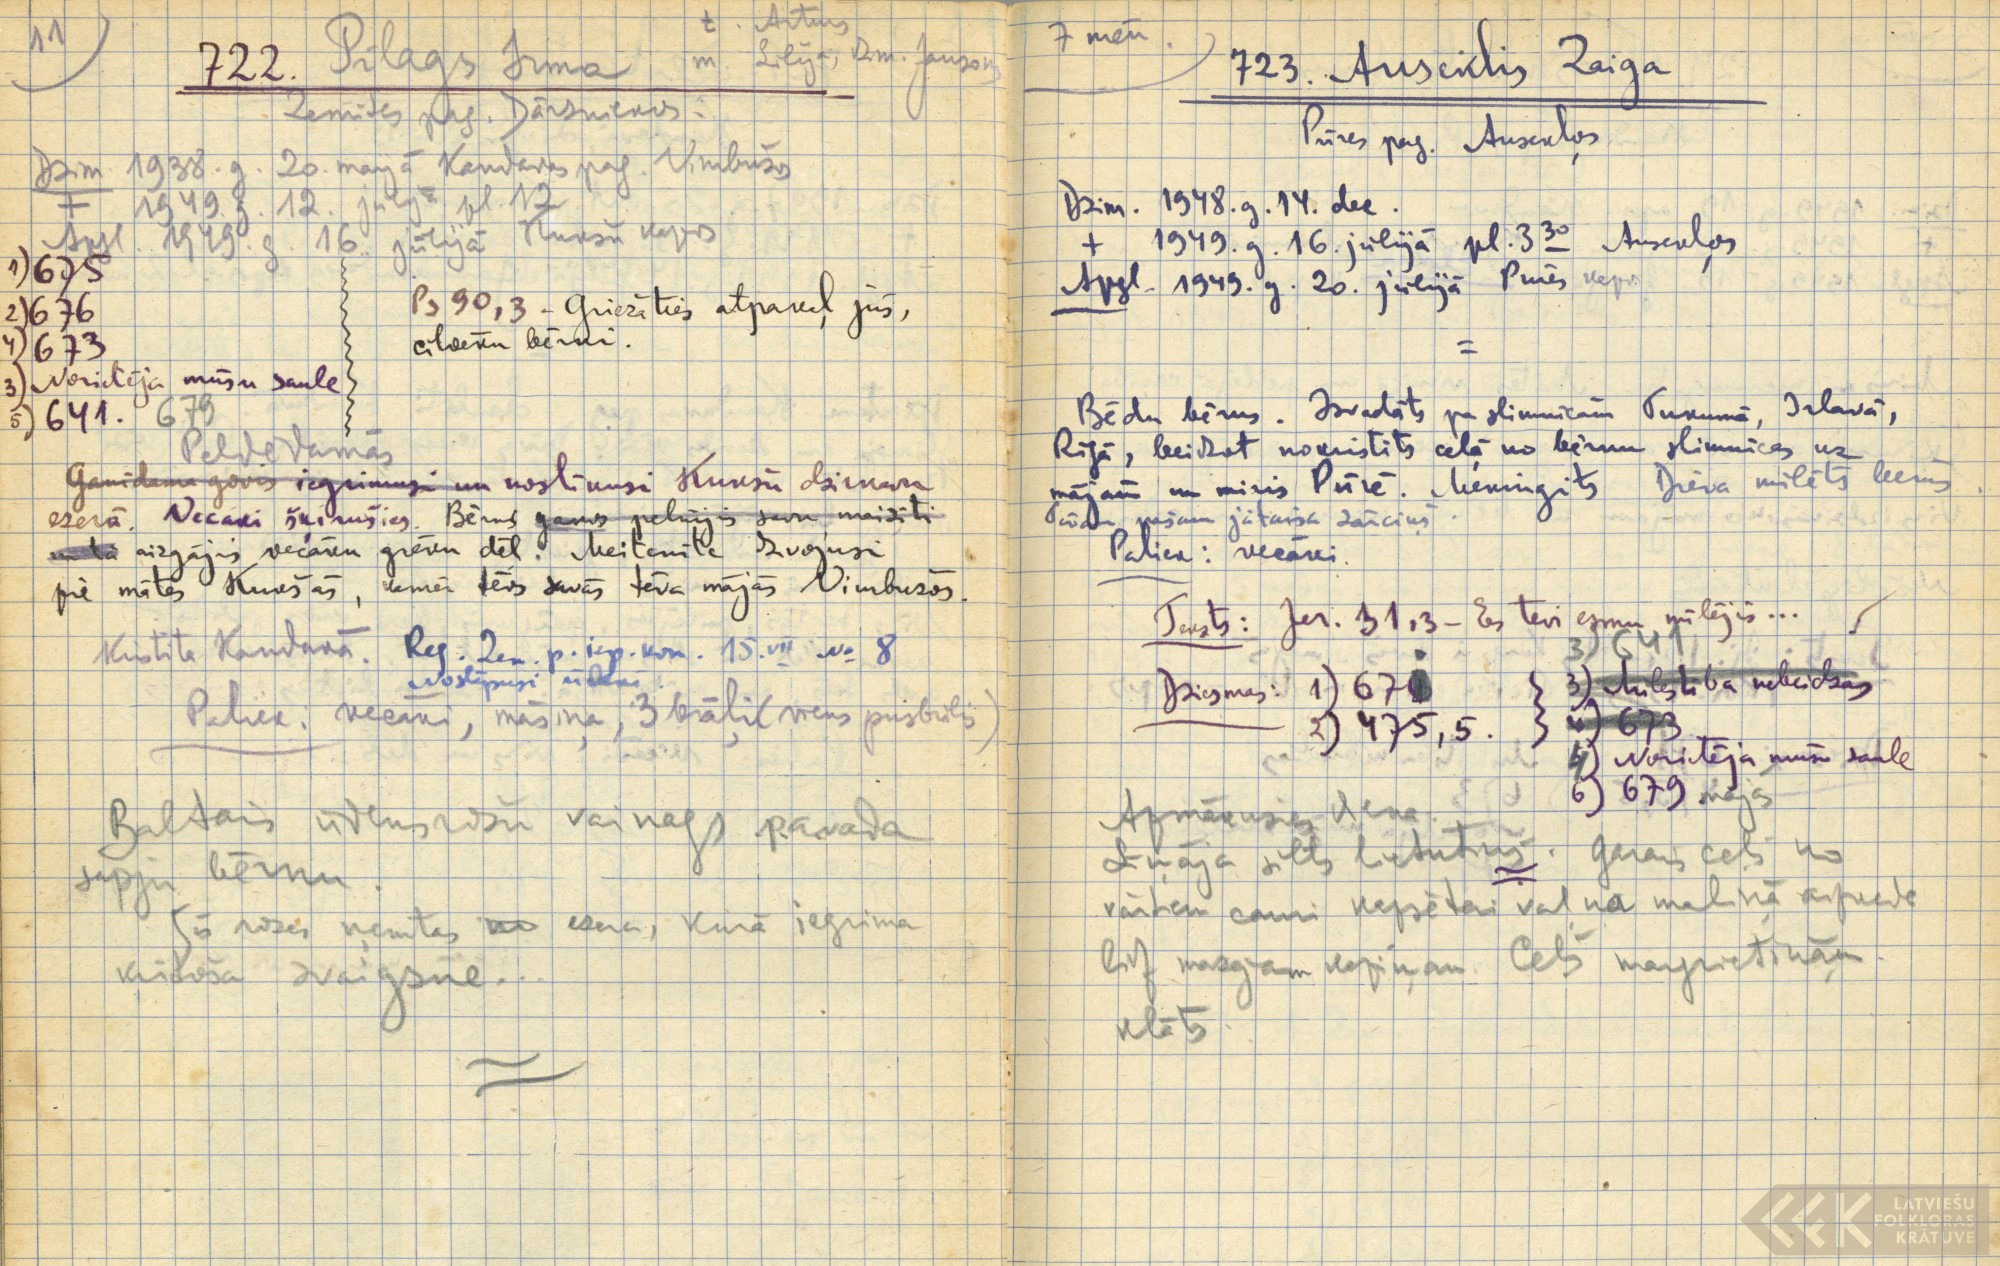 11
722. Pilags Irma
t. Arturs
m. Lilija, dzim. Jansons
Zemites pag. Dārzniekos:
Dzim. 1938. g. 20. maijā Kandavas pag. Vimbušos
+ 1949. g. 12. jūlijā pl. 17
Apgl. 1949. g. 16. jūlijā Kukšu kapos
1) 675
2) 676
4) 673
3) Norietēja mūsu saule
5) 641. 679
Ps 90,3 - Griežaties atpakaļ jūs,
cilvēku bērni.
Peldēdamās
Ganīdama govis iegrimusi un noslīkusi Kukšu dzirnavu
ezerā. Vecāki šķirušies. Bērns ganos pelnījis savu maizīti
un tā aizgājis vecāku grēku dēļ. Meitenīte dzīvojusi
pie mātes Kukšās, kamēr tēvs savās tēva mājās Vimbušos.
Kristīta Kandavā. Reg. Zem. p. izp. kom. 15. VII No 8
Noslīpusi ūdenī.
Paliek: vecāki, māsiņa, 3 brāļi (viens pusbrālis)
Baltais ūdensrožu vainags pavada
sapju bērnu.
Šīs rozes ņemtas no ezera, kurā iegrima
krītoša zvaigsne...
7 mēn.
723. Auseklis Zaiga
Pūres pag. Ausekļos
Dzim. 1948. g. 14. dec.
+ 1949. g. 16. jūlijā pl. 3 30 Ausekļos
Apgl. 1949. g. 20. jūlijā Pūres kapos
=
Bēdu bērns. Izvadāts pa slimnīcām Tukumā, Irlavā,
Rīgā, beidzot nokristīts ceļā no bērnu slimnīcas uz
mājām un miris Pūrē. Meningits Dieva mīlēts bērns.
Tēvam pašam jātaisa zārciņš.
Paliek: vecāki.
Teksts: Jer. 31,3 - Es tevi esmu mīlējis...
3) 641
Dziesmas: 1) 671
2) 475, 5.
3) Mīlestība nebeidzas
4) 673
4) Norietēja mūsu saule
6) 679 mājās
Apmākusies diena.
Līņāja silts lietutiņš. Garais ceļš no
vārtiem cauri kapsētai vaļņa maliņā aizveda
līdz mazajam kapiņam. Ceļš margrietiņām
klāts.
LATVIEŠU
FOLKLORAS
KRĀTUVE